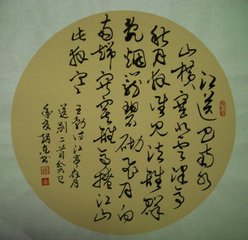 江送巴南水
山横塞北云津亭
秋月夜谁见泣离群
乱烟笼碧砌飞月向
南端寂寞离亭掩江山
此夜寒 王勃诗江亭夜月
送别二首癸巳
年夏书